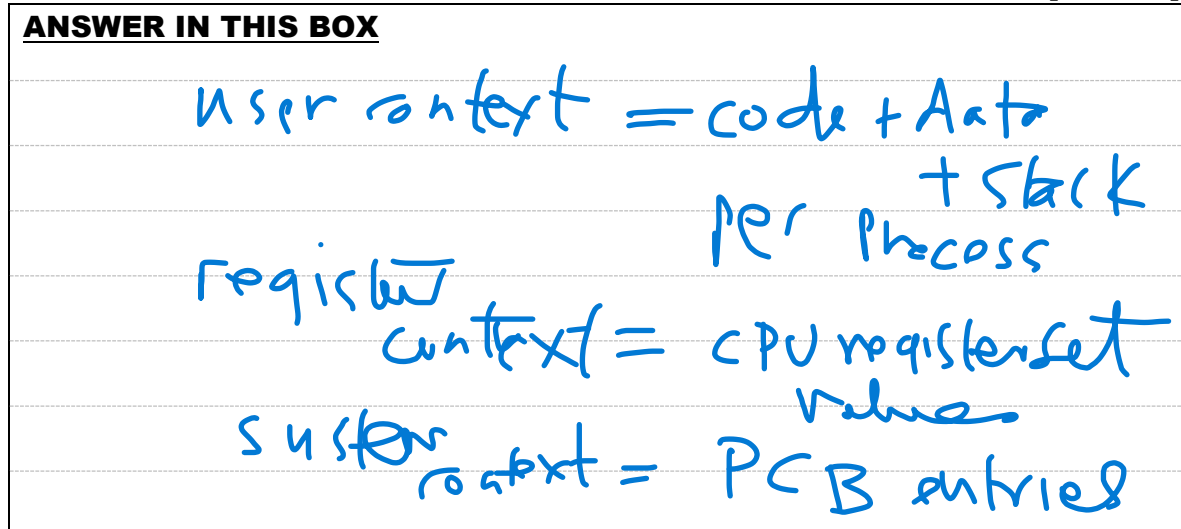 ANSWER IN THIS BOX
user context = code + data
+ stack
per process
register
context = CPU register set
values
system
context = PCB entries